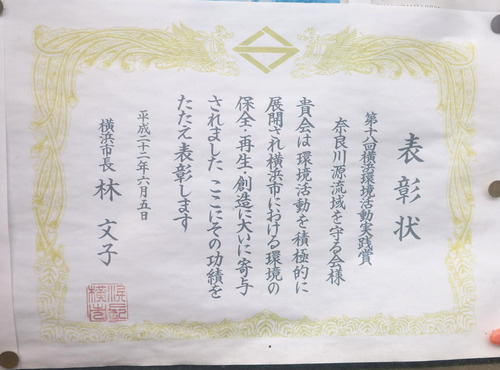 表彰状
第十八回横浜環境活動実践賞
奈良川源流域を守る会様
貴会は環境活動を積極的に
展開され横浜市における環境の
保全・再生・創造に大いに寄与
されました ここにその功績を
たたえ表彰します
平成二十二年六月五日
横浜市長 林 文子